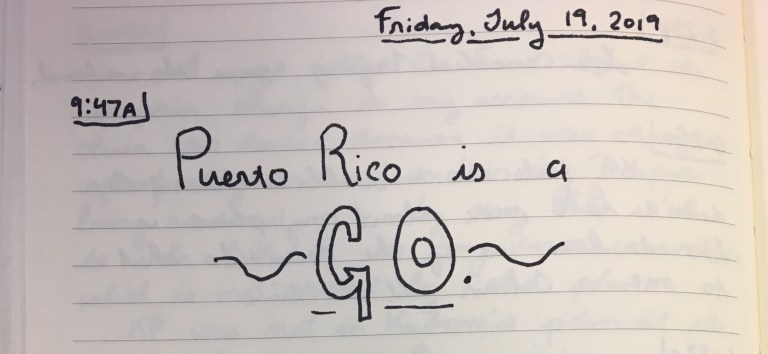 Friday, July 19, 2019
9:47A
Puerto Rico is a
~ GO. ~